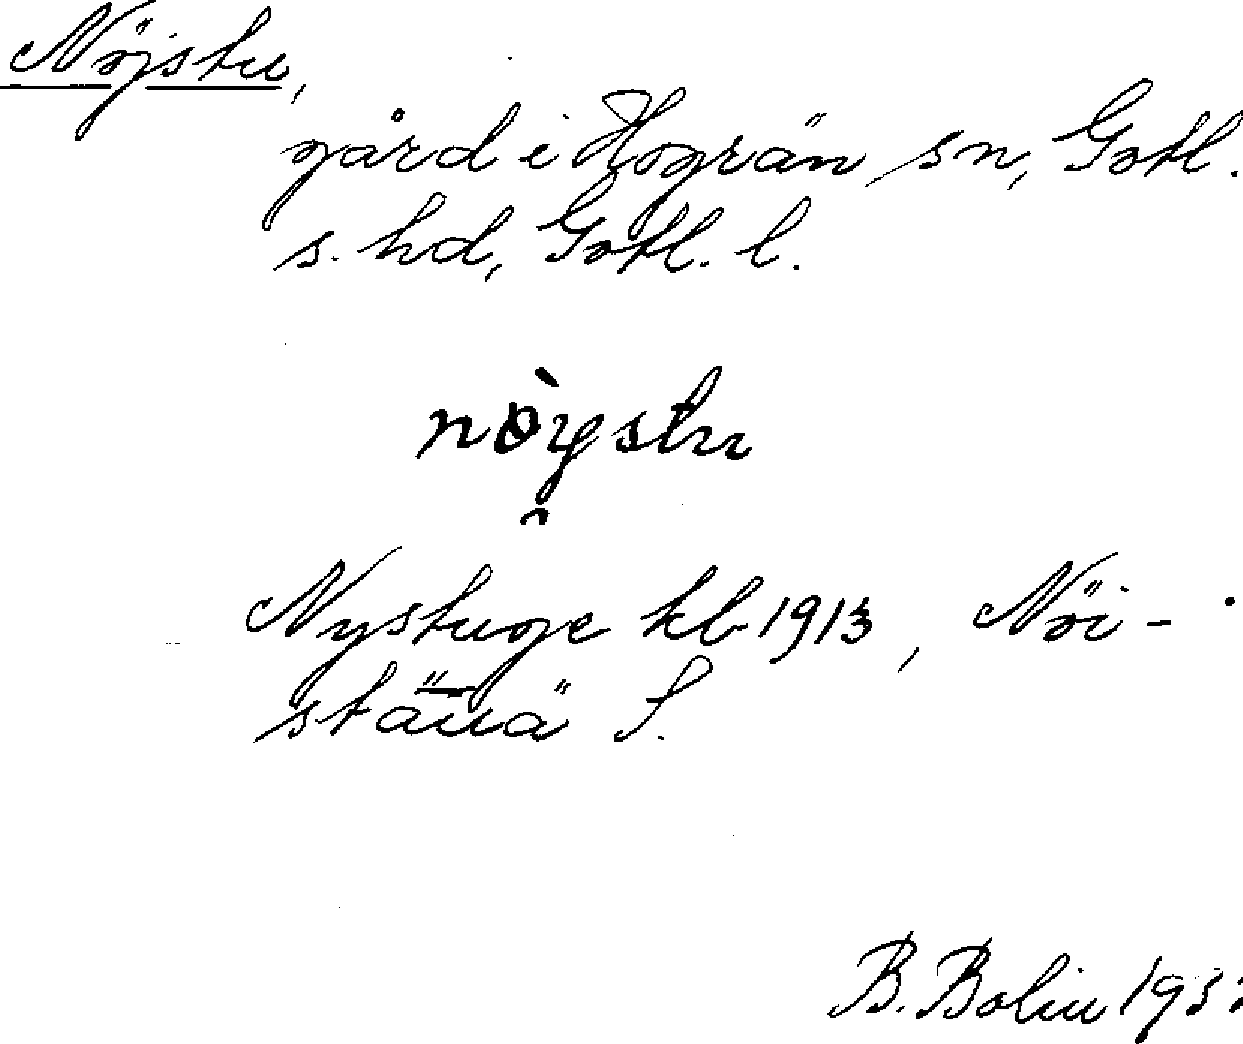 Nöjstu,
gård i Hogrän sn, Gotl.
s. hd, Gotl. l.
nòystu
Nystuge kb 1913, Nöi-
S.
B. Bolin